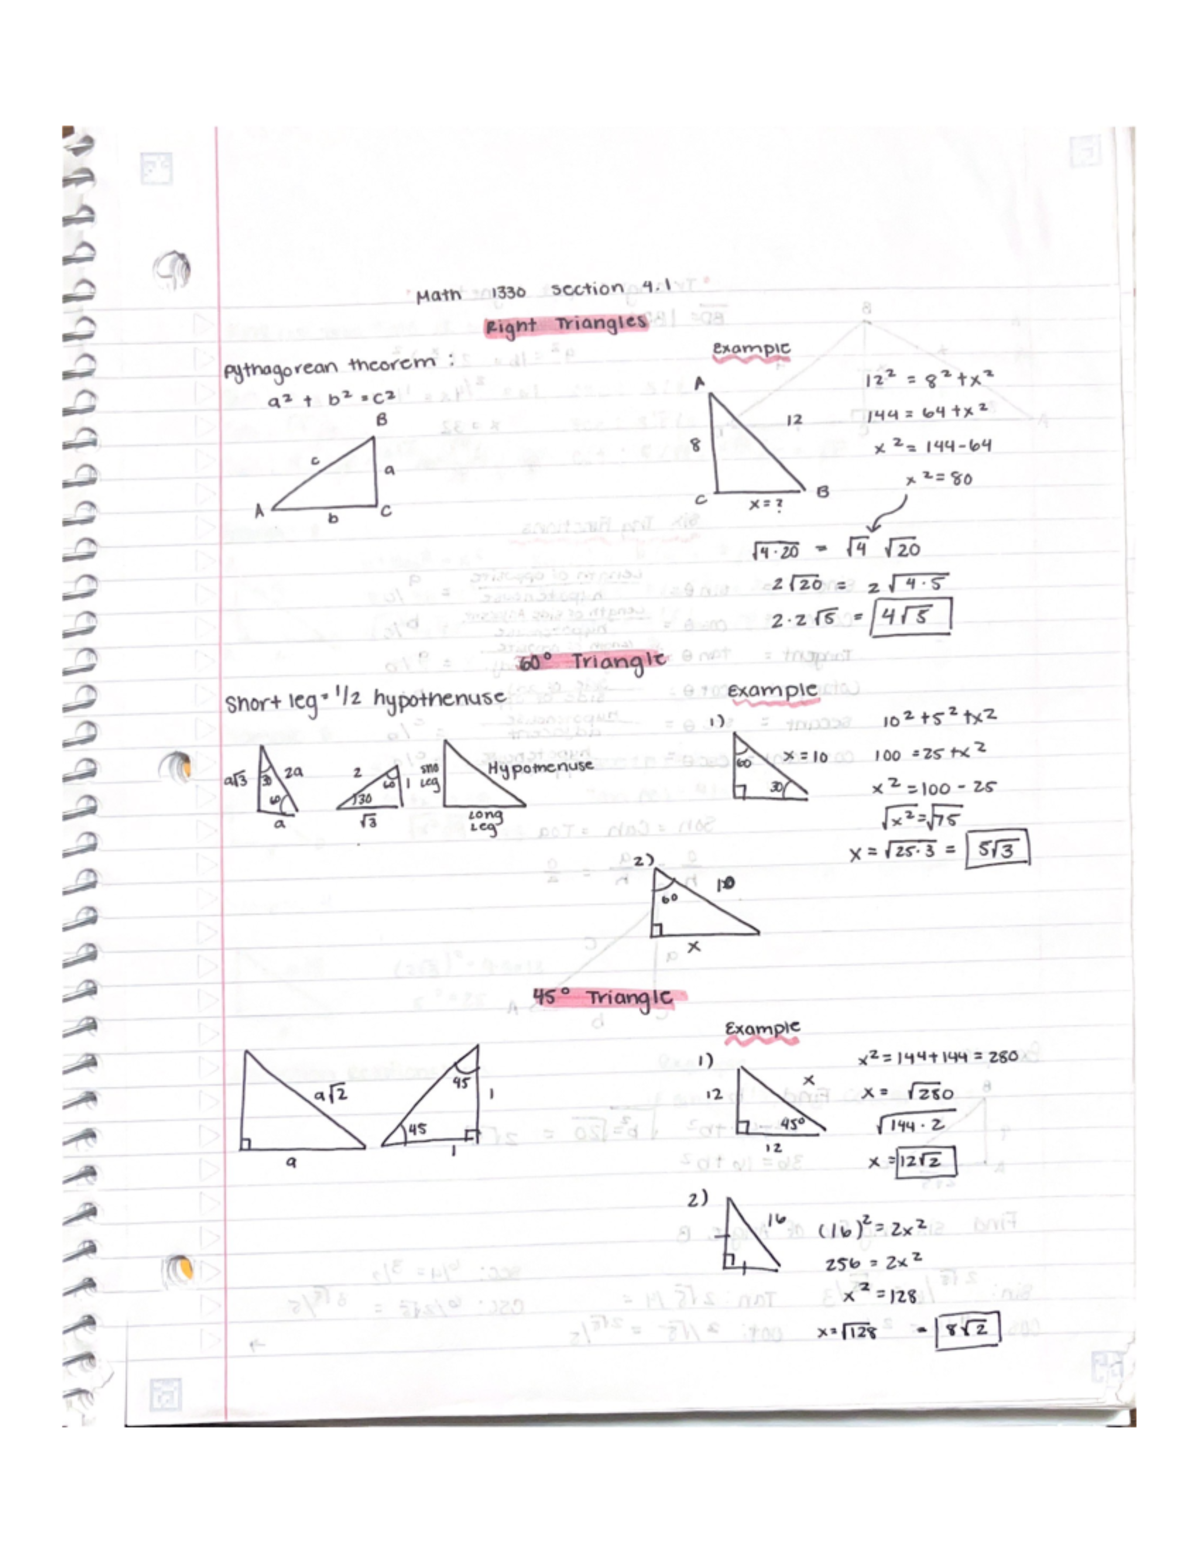 Math 1330 section 4.1
Right Triangles
Pythagorean theorem :
a² + b² = c²
B
c
a
A
b
C
Example
A
12
8
C
x = ?
B
12² = 8² + x²
144 = 64 + x²
x² = 144 - 64
x² = 80
√4·20 = √4 √20
2√20 = 2√4·5
2·2√5 = 4√5
60° Triangle
Short leg = 1/2 hypothenuse
a√3
30
2a
60
a
2
60
1
30
√3
Leg
Hypotenuse
Long
Leg
Example
1)
60
x = 10
30
10² + 5² + x²
100 = 25 + x²
x² = 100 - 25
√x² = √75
x = √25·3 = 5√3
2)
60
10
x
45° Triangle
a√2
a
45
45
1
1
Example
1)
12
x
45°
12
x² = 144 + 144 = 280
x = √280
√144·2
x = 12√2
2)
16
(16)² = 2x²
256 = 2x²
x² = 128
x = √128 = 8√2